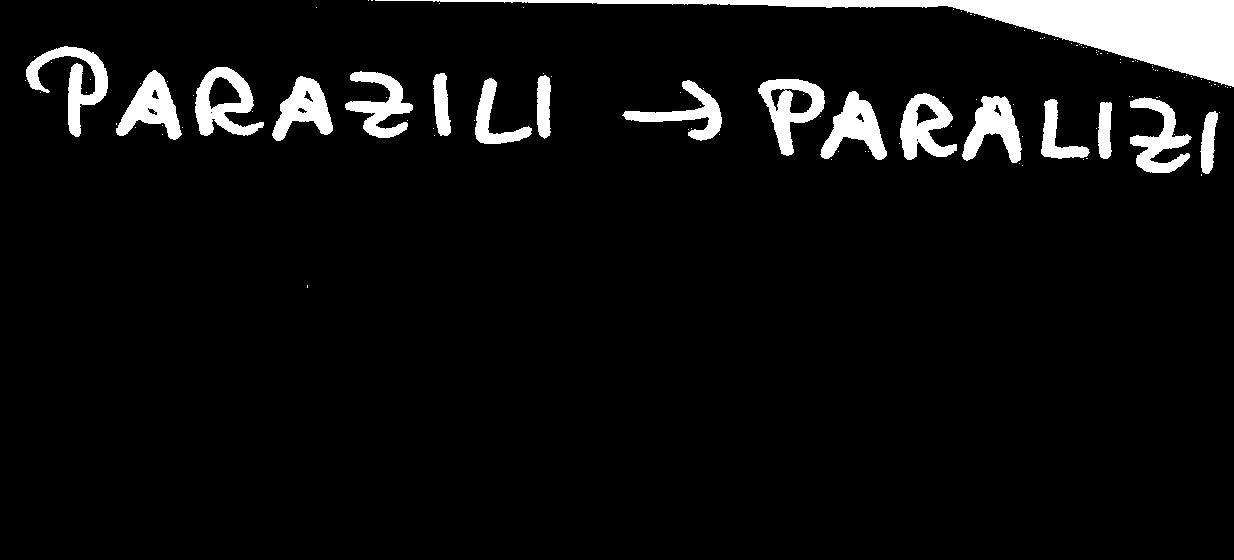 PARAZILI → PARALIZI